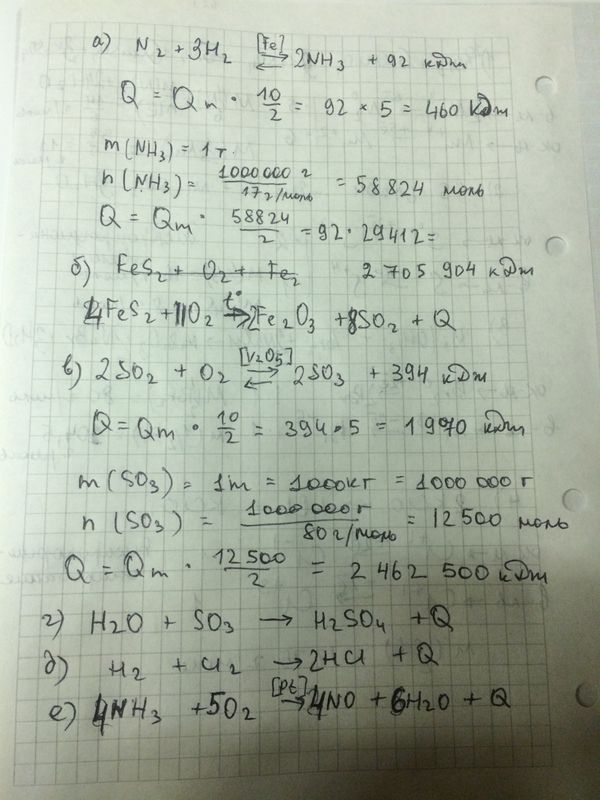 а) N₂ + 3H₂ [Fe] ⇄ 2NH₃ + 92 кДж
Q = Qп · 10/2 = 92 × 5 = 460 кДж
m(NH₃) = 1 т.
n(NH₃) = 1000 000 г / 17 г/моль = 58824 моль
Q = Qm · 58824/2 = 92 · 29412 =
2 705 904 кДж
б) FeS₂ + O₂ + Fe₂
4FeS₂ + 11O₂ t° → 2Fe₂O₃ + 8SO₂ + Q
в) 2SO₂ + O₂ [V₂O₅] ⇄ 2SO₃ + 394 кДж
Q = Qm · 10/2 = 394 · 5 = 1970 кДж
m(SO₃) = 1т = 1000кг = 1000 000 г
n(SO₃) = 1000 000 г / 80 г/моль = 12500 моль
Q = Qm · 12500/2 = 2 462 500 кДж
г) H₂O + SO₃ → H₂SO₄ + Q
д) H₂ + Cl₂ → 2HCl + Q
е) 4NH₃ + 5O₂ [Pt] → 4NO + 6H₂O + Q